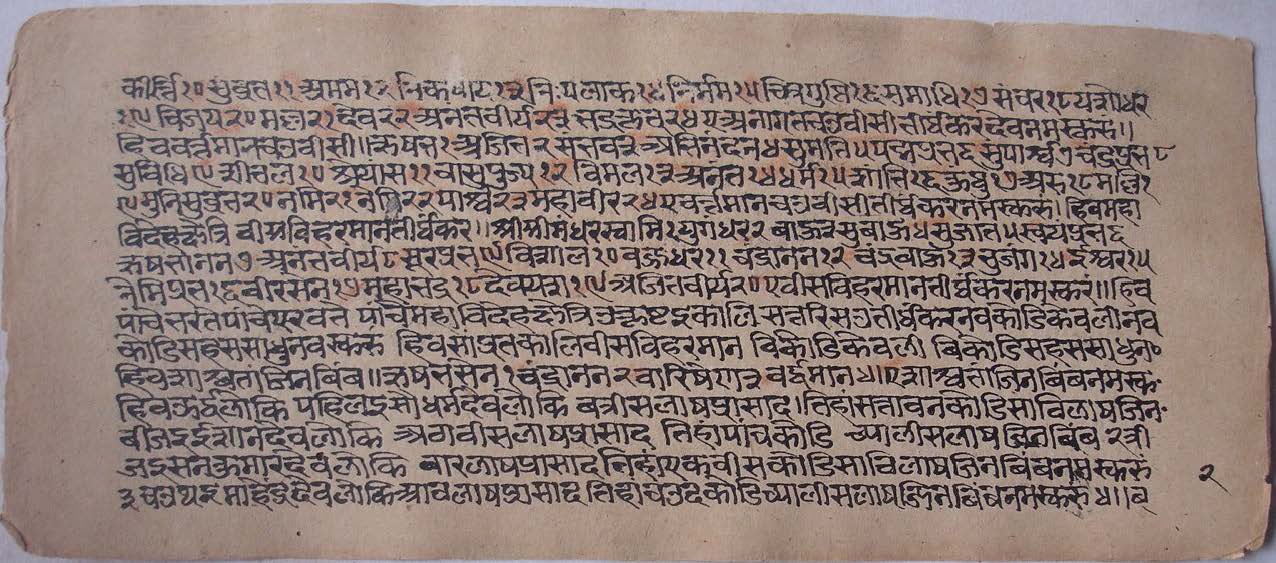 कीर्त्ति १० सुव्रत ११ अमम १२ निकषाय १३ निःपलाक १४ निर्मम १५ चित्रगुप्ति १६ समाधि १७ संवर १८ यशोधर
१९ विजय २० मल्ल २१ देव २२ अनंतवीर्य २३ भद्रकृत २४ ए अनागत चउवीसी तीर्थंकरदेव नमस्करुं॥
हिव वर्त्तमान चउवीसी॥ ऋषभ १ अजित २ संभव ३ अभिनंदन ४ सुमति ५ पद्मप्रभ ६ सुपार्श्व ७ चंद्रप्रभ ८
सुविधि ९ शीतल १० श्रेयांस ११ वासुपुज्य १२ विमल १३ अनंत १४ धर्म १५ शांति १६ कुंथु १७ अर १८ मल्लि १९
मुनिसुव्रत २० नमि २१ नेमि २२ पार्श्व २३ महावीर २४ ए वर्त्तमान चउवीसी तीर्थंकर नमस्करुं। हिव महा
विदेहक्षेत्रि वीस विहरमान तीर्थंकर॥ श्रीसीमंधरस्वामि १ युगंधर २ बाहु ३ सुबाहु ४ सुजात ५ स्वयंप्रभ ६
ऋषभानन ७ अनंतवीर्य ८ सूरप्रभ ९ विशाल १० वज्रधर ११ चंद्रानन १२ चंद्रबाहु १३ भुजंग १४ ईश्वर १५
नेमिप्रभ १६ वीरसेन १७ महाभद्र १८ देवयशा १९ अजितवीर्य २० ए वीस विहरमान तीर्थंकर नमस्करुं॥ हिव
पांच भरत पांच एरवत पांच महाविदेहक्षेत्रि उत्कृष्टइ कालि सत्तरिसउ तीर्थंकर नव कोडि केवली नव
कोडिसहस साधु नमस्करुं हिव सांप्रत कालि वीस विहरमान बि कोडि केवली बि कोडिसहस साधु न॰
हिव शाश्वता जिनबिंब॥ ऋषभसेन १ चंद्रानन २ वारिषेण ३ वर्द्धमान ४ ए शाश्वता जिनबिंब नमस्क॰
हिव ऊर्ठलोकि पहिलइ सौधर्म देवलोकि बत्रीस लाष प्रासाद। तिहां सत्तावन कोडि साठि लाष जिन॰
बीजइ ईशान देवलोकि अठावीस लाष प्रासाद तिहां पांच कोडि च्यालीस लाष जिनबिंब २ त्री
जइ सनत्कुमार देवलोकि बार लाष प्रासाद तिहां एकवीस कोडि साठि लाष जिनबिंब नमस्करुं
३ चउथइ माहेंद्र देवलोकि आठ लाष प्रासाद तिहां चउद कोडि च्यालीस लाष जिनबिंब नमस्करुं ४॥ ब
२